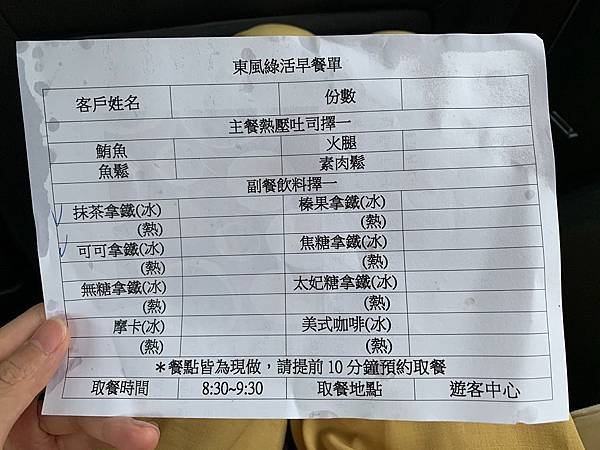 東風綠活早餐單
客戶姓名 份數
主餐熱壓吐司擇一
鮪魚 火腿
魚鬆 素肉鬆
副餐飲料擇一
抹茶拿鐵(冰) 榛果拿鐵(冰)
(熱) (熱)
可可拿鐵(冰) 焦糖拿鐵(冰)
(熱) (熱)
無糖拿鐵(冰) 太妃糖拿鐵(冰)
(熱) (熱)
摩卡(冰) 美式咖啡(冰)
(熱) (熱)
＊餐點皆為現做，請提前10分鐘預約取餐
取餐時間 8:30~9:30 取餐地點 遊客中心